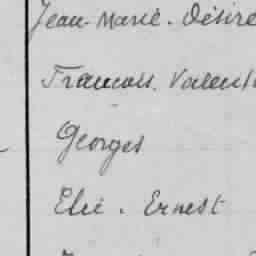 Jean-Marie. Désiré
François. Valent
Georges
Elie. Ernest